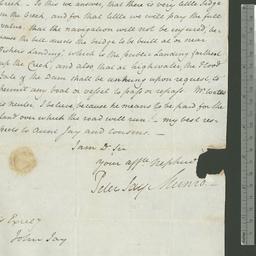 Creek. To this we answer, that there is very little sedge
on the Creek, and for that little we will pay the full
value; that the navigation will not be injured, be-
cause the law directs the bridge to be built at or near
Fishers Landing, which is the public Landing farthest
up the Creek, and also that in high water, the Flood
Gate of the Dam shall be open upon request, to
permit any boat or vessel to pass or repass.
is neuter, I believe because he means to be paid for the
land over which the road will run. My best res-
pects to Aunt Jay and cousins.
I am D. Sir
your affte. Nephew
Peter Jay Munro
John Jay